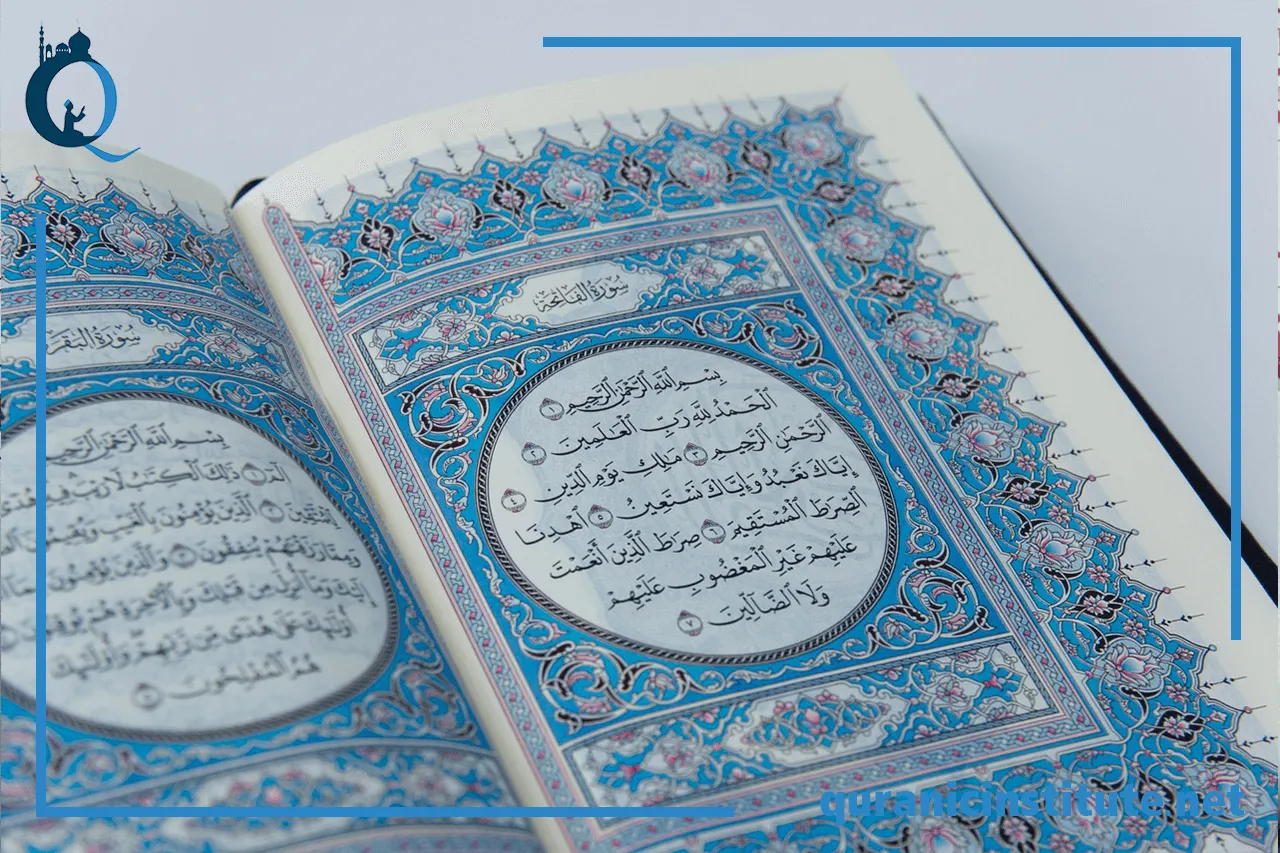 سُورَةُ الفَاتِحَةِ
بِسْمِ ٱللَّهِ ٱلرَّحْمَٰنِ ٱلرَّحِيمِ ١
ٱلْحَمْدُ لِلَّهِ رَبِّ ٱلْعَٰلَمِينَ ٢
ٱلرَّحْمَٰنِ ٱلرَّحِيمِ ٣ مَٰلِكِ يَوْمِ ٱلدِّينِ ٤
إِيَّاكَ نَعْبُدُ وَإِيَّاكَ نَسْتَعِينُ ٥ ٱهْدِنَا
ٱلصِّرَٰطَ ٱلْمُسْتَقِيمَ ٦ صِرَٰطَ ٱلَّذِينَ أَنْعَمْتَ
عَلَيْهِمْ غَيْرِ ٱلْمَغْضُوبِ عَلَيْهِمْ
وَلَا ٱلضَّآلِّينَ ٧
سُورَةُ البَقَرَ
بِسْمِ ٱللَّهِ ٱلرَّحْمَٰنِ ٱلرَّحِيمِ
الٓمٓ ١ ذَٰلِكَ ٱلْكِتَٰبُ لَا رَيْبَ فِيهِ هُدًى
لِّلْمُتَّقِينَ ٢ ٱلَّذِينَ يُؤْمِنُونَ بِٱلْغَيْبِ وَيُقِيمُونَ
وَمِمَّا رَزَقْنَٰهُمْ يُنفِقُونَ ٣ وَٱلَّذِينَ يُؤْمِنُونَ بِمَآ
إِلَيْكَ وَمَآ أُنزِلَ مِن قَبْلِكَ وَبِٱلْءَاخِرَةِ هُمْ يُوقِنُونَ
أُو۟لَٰٓئِكَ عَلَىٰ هُدًى مِّن رَّبِّهِمْ وَأُو۟لَٰٓئِكَ
هُمُ ٱلْمُفْلِحُونَ ٥
quranicinstitute.net